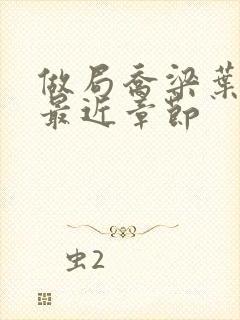 做局乔梁葉
最近章節
虫2